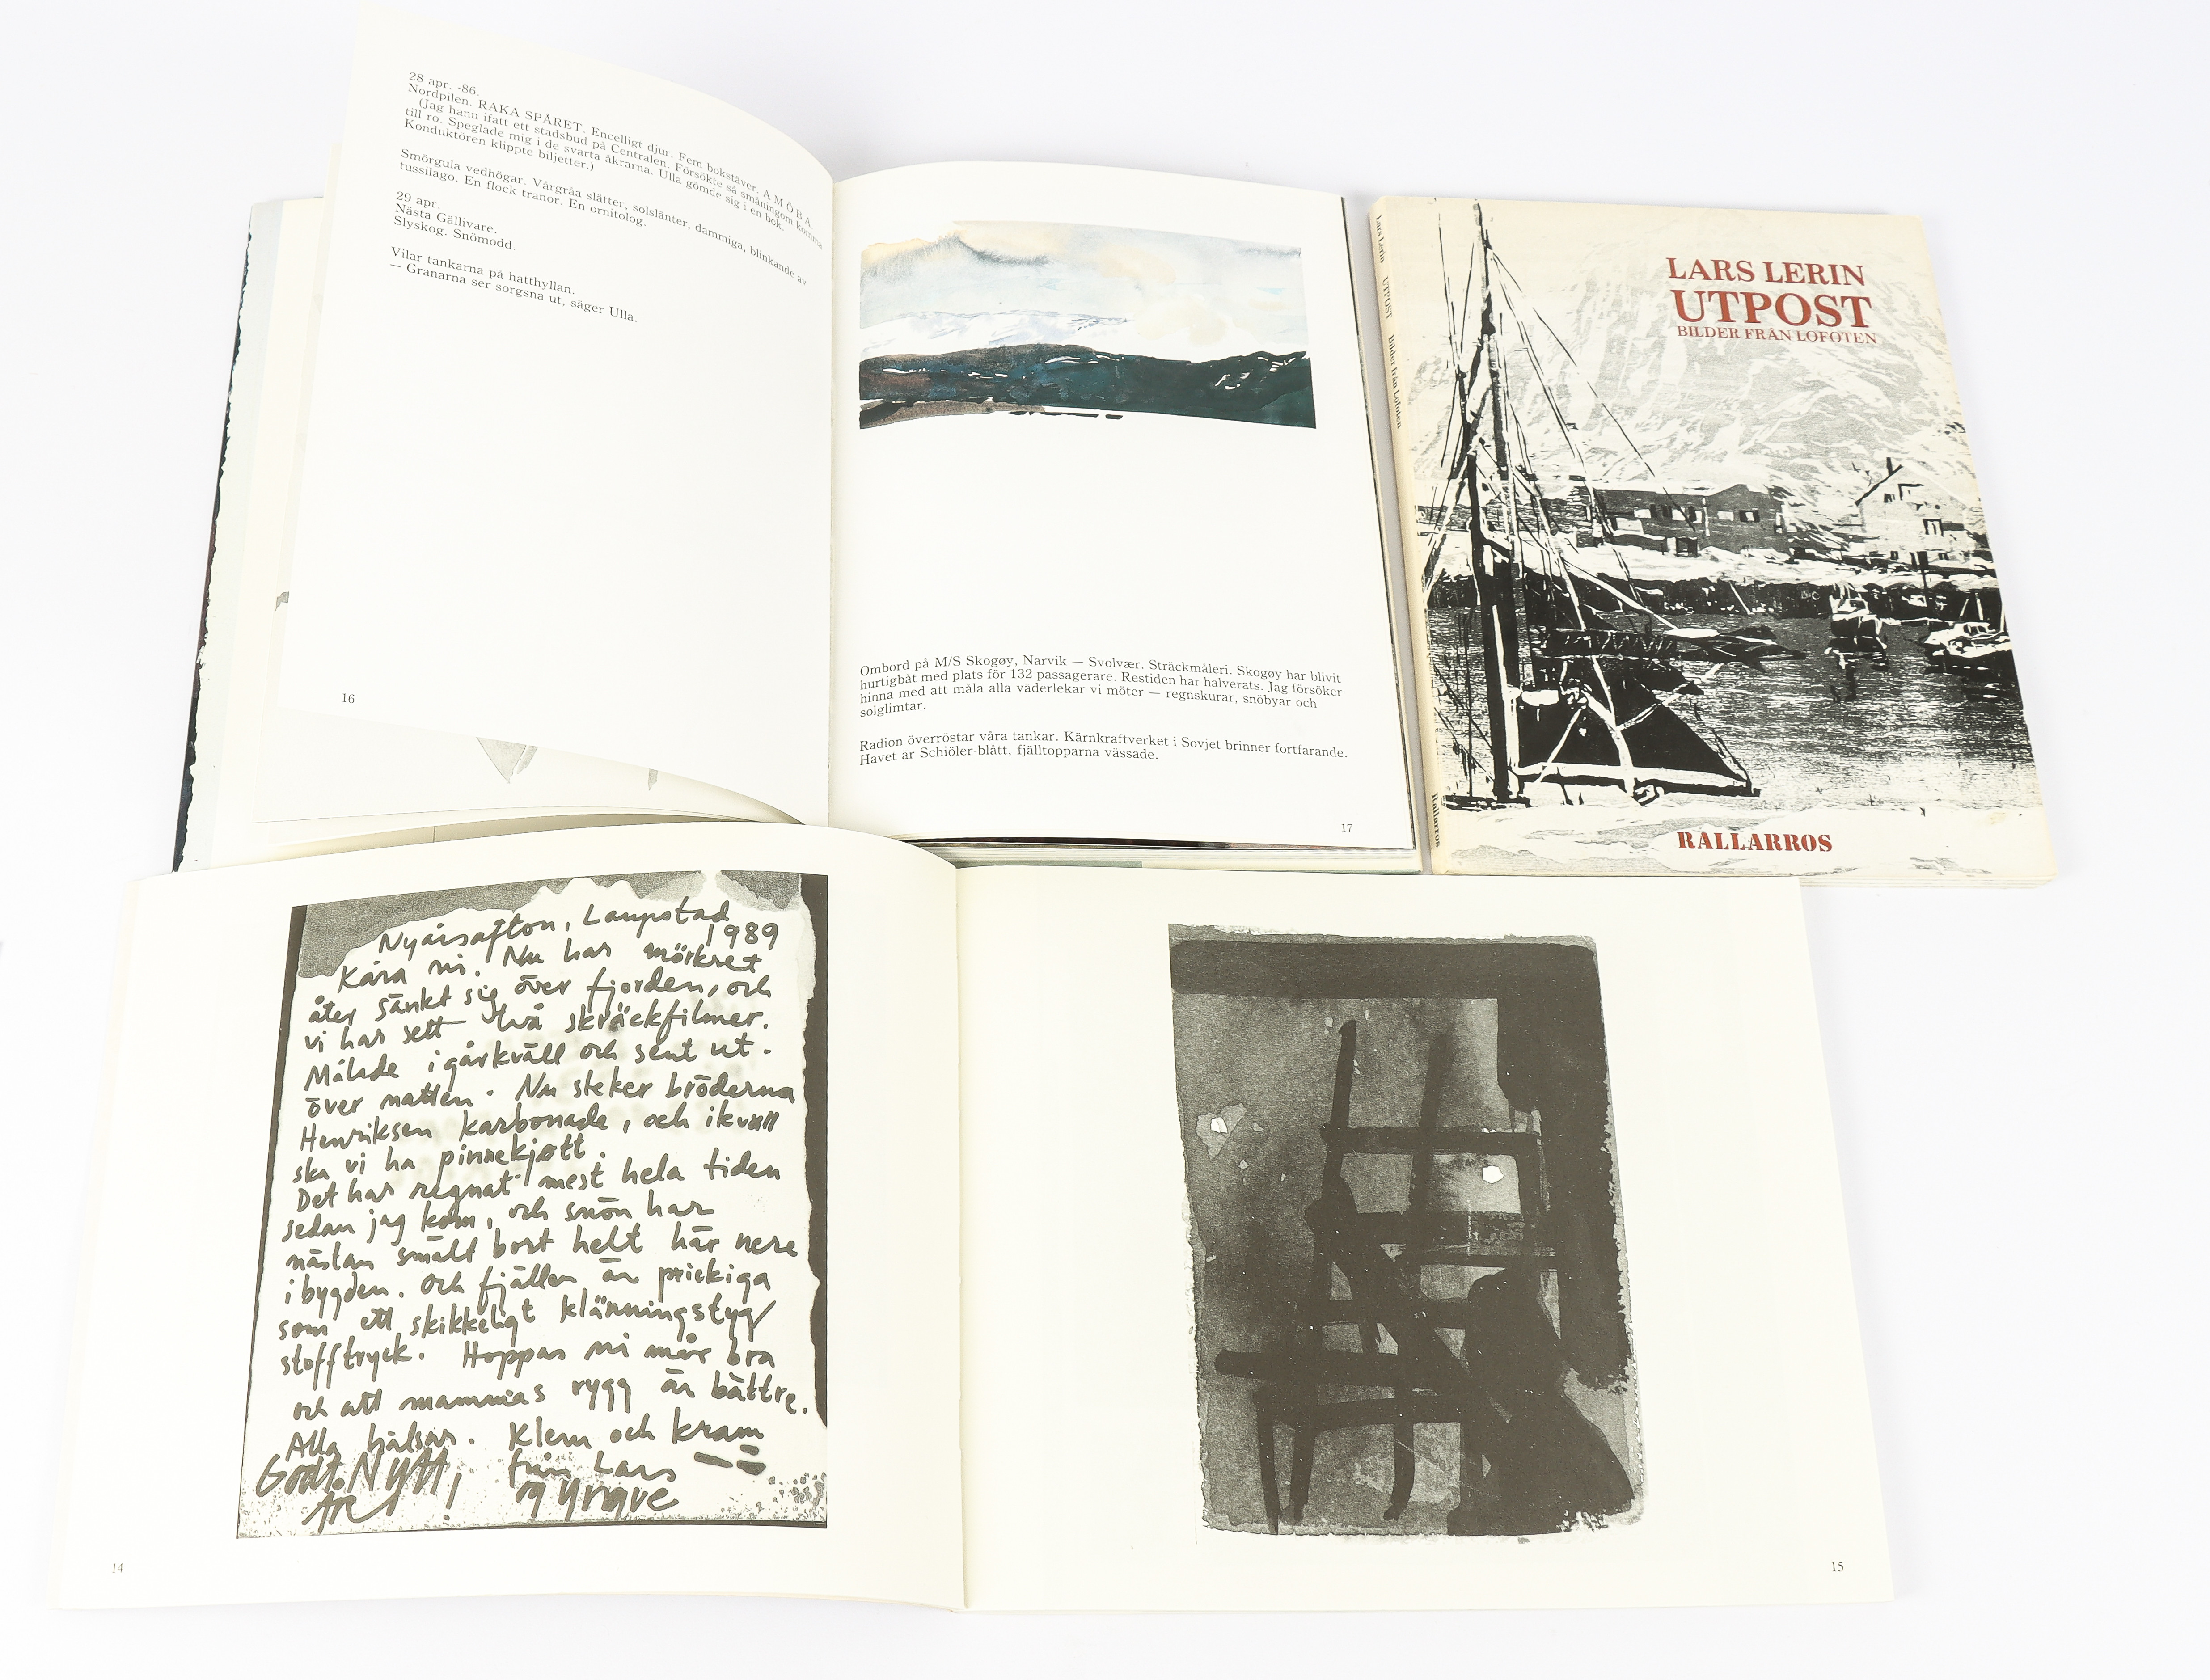 28 apr. -86.
Nordpilen. RAKA SPÅRET. Encelligt djur. Fem bokstäver. A M Ö B A.
(Jag hann ifatt ett stadsbud på Centralen. Försökte så småningom komma
till ro. Speglade mig i de svarta åkrarna. Ulla gömde sig i en bok.
Konduktören klippte biljetter.)
Smörgula vedhögar. Vårgråa slätter, solslänter, dammiga, blinkande av
tussilago. En flock tranor. En ornitolog.
29 apr.
Nästa Gällivare.
Slyskog. Snömodd.
Vilar tankarna på hatthyllan.
— Granarna ser sorgsna ut, säger Ulla.
16
Ombord på M/S Skogøy, Narvik — Svolvær. Sträckmåleri. Skogøy har blivit
hurtigbåt med plats för 132 passagerare. Restiden har halverats. Jag försöker
hinna med att måla alla väderlekar vi möter — regnskurar, snöbyar och
solglimtar.
Radion överröstar våra tankar. Kärnkraftverket i Sovjet brinner fortfarande.
Havet är Schiöler-blått, fjälltopparna vässade.
17
Lars Lerin UTPOST Bilder från Lofoten Rallarros
LARS LERIN
UTPOST
BILDER FRÅN LOFOTEN
RALLARROS
Nyårsafton, Laupstad
1989
Kära ni. Nu har mörkret
åter sänkt sig över fjorden, och
vi har sett två skräckfilmer.
Målade igårkväll och sent ut.
över natten. Nu steker bröderna
Henriksen karbonade, och ikväll
ska vi ha pinnekjøtt.
Det har regnat mest hela tiden
sedan jag kom, och snön har
nästan smält bort helt här nere
i bygden. Och fjällen är prickiga
som ett skikkeligt klänningstyg
stofftryck. Hoppas ni mår bra
och att mammas rygg är bättre.
Alla hälsar. Klem och kram
Godt Nytt från Lars
År! og Yngve
14
15